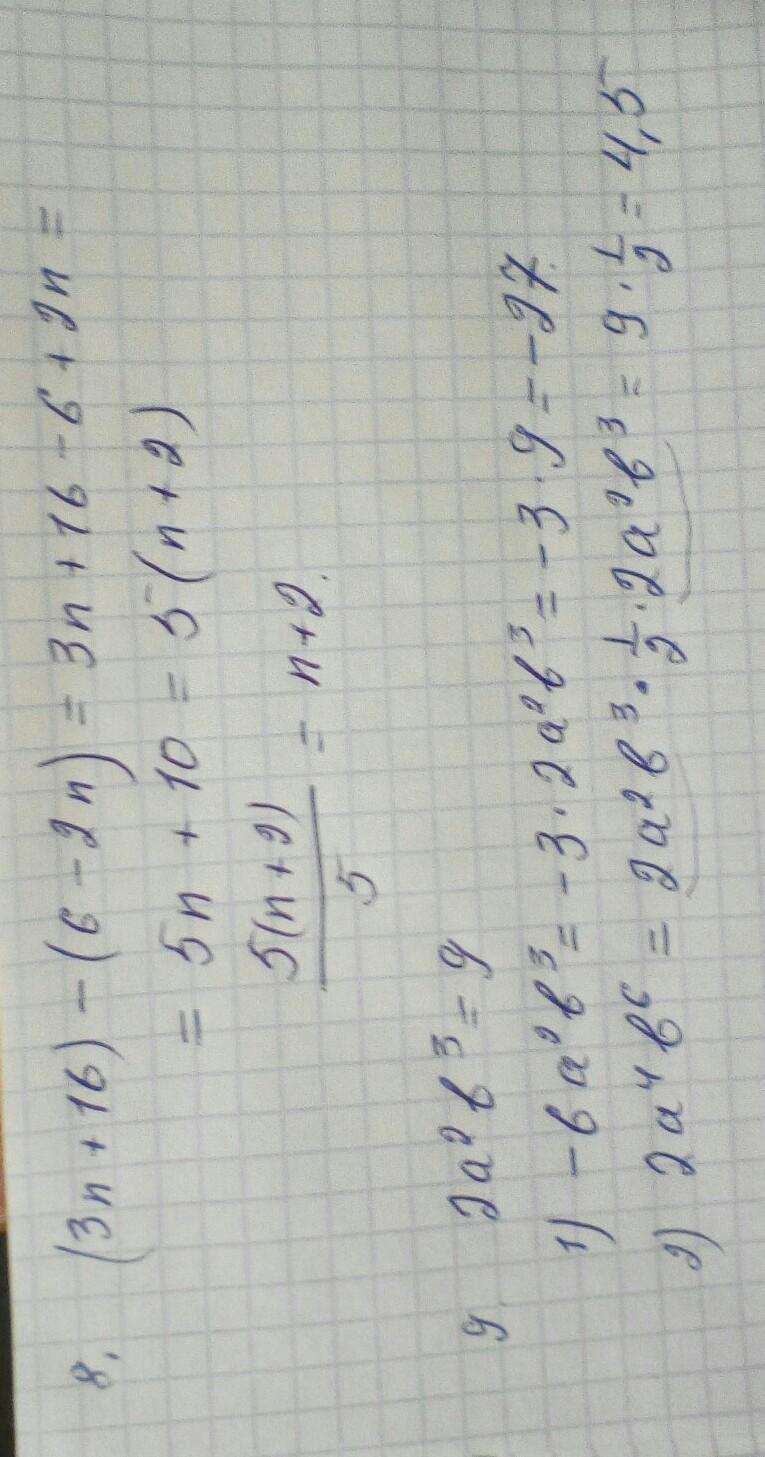 8. (3n + 16) - (6 - 2n) = 3n + 16 - 6 + 2n =
= 5n + 10 = 5(n + 2)
5(n + 2)/5 = n + 2.
9. 2a²b³ = 9
1) -6a²b³ = -3 · 2a²b³ = -3 · 9 = -27.
2) 2a⁴b⁶ = 2a²b³ · 1/2 · 2a²b³ = 9 · 1/2 = 4,5